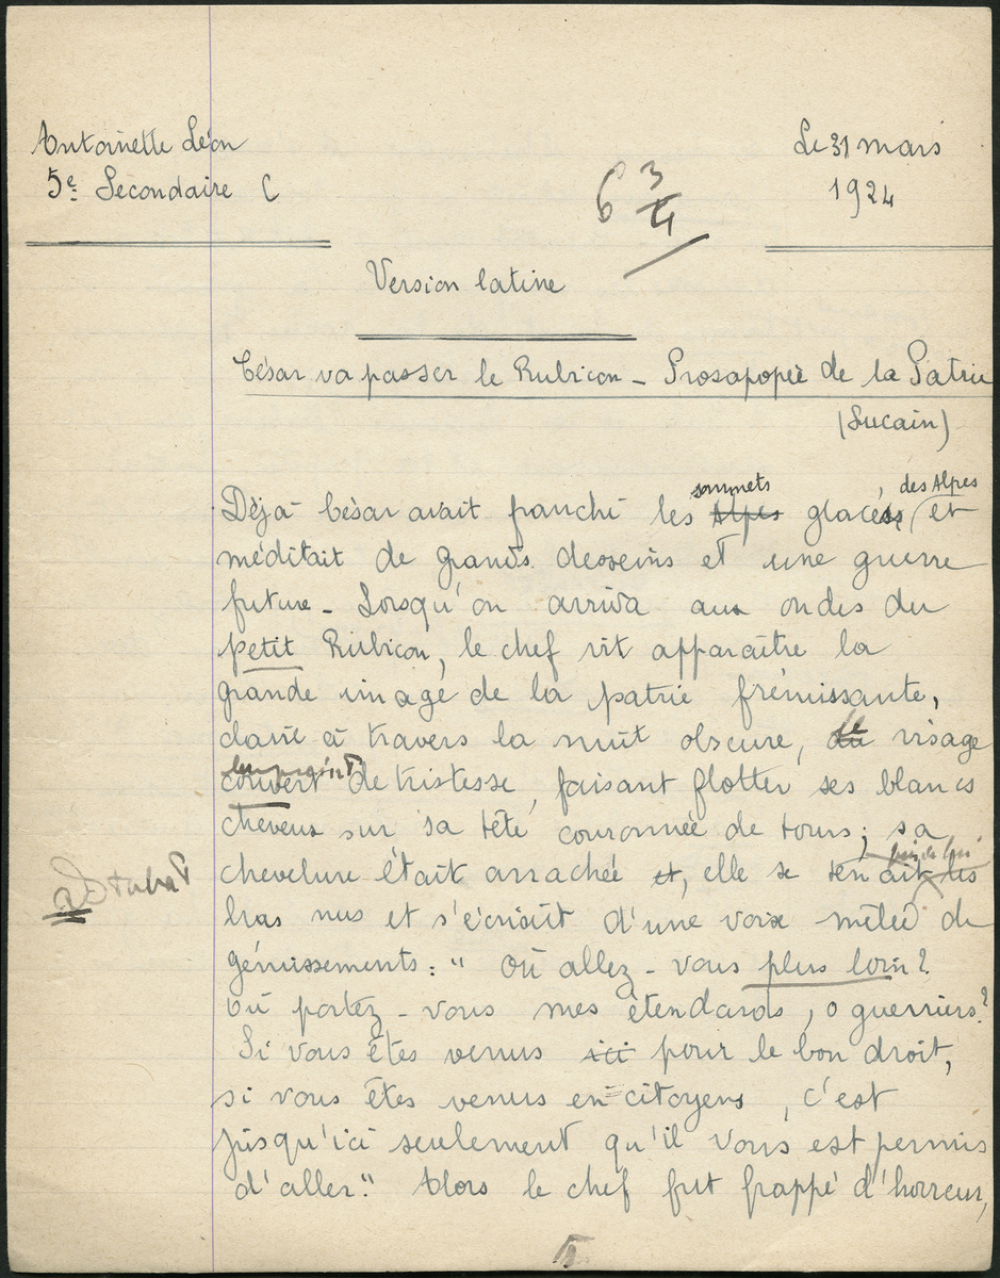 Antoinette Léon
Le 31 mars
5e Secondaire C
1924
6 3/4
Version latine
César va passer le Rubicon - Prosopopée de la Patrie
(Lucain)
sommets des Alpes
Déjà César avait franchi les Alpes glacés, et
méditait de grands desseins et une guerre
future - Lorsqu'on arriva aux ondes du
petit Rubicon, le chef vit apparaître la
grande image de la patrie frémissante,
claire à travers la nuit obscure, le visage
empreint
couvert de tristesse, faisant flotter ses blancs
cheveux sur sa tête couronnée de tours; sa
chevelure était arrachée et, elle se tenait les
bras nus et s'écriait d'une voix mêlée de
gémissements: " Où allez-vous plus loin?
Où portez-vous mes étendards, o guerriers?
Si vous êtes venus ici pour le bon droit,
si vous êtes venus en citoyens, c'est
jusqu'ici seulement qu'il vous est permis
d'aller." Alors le chef fut frappé d'horreur,